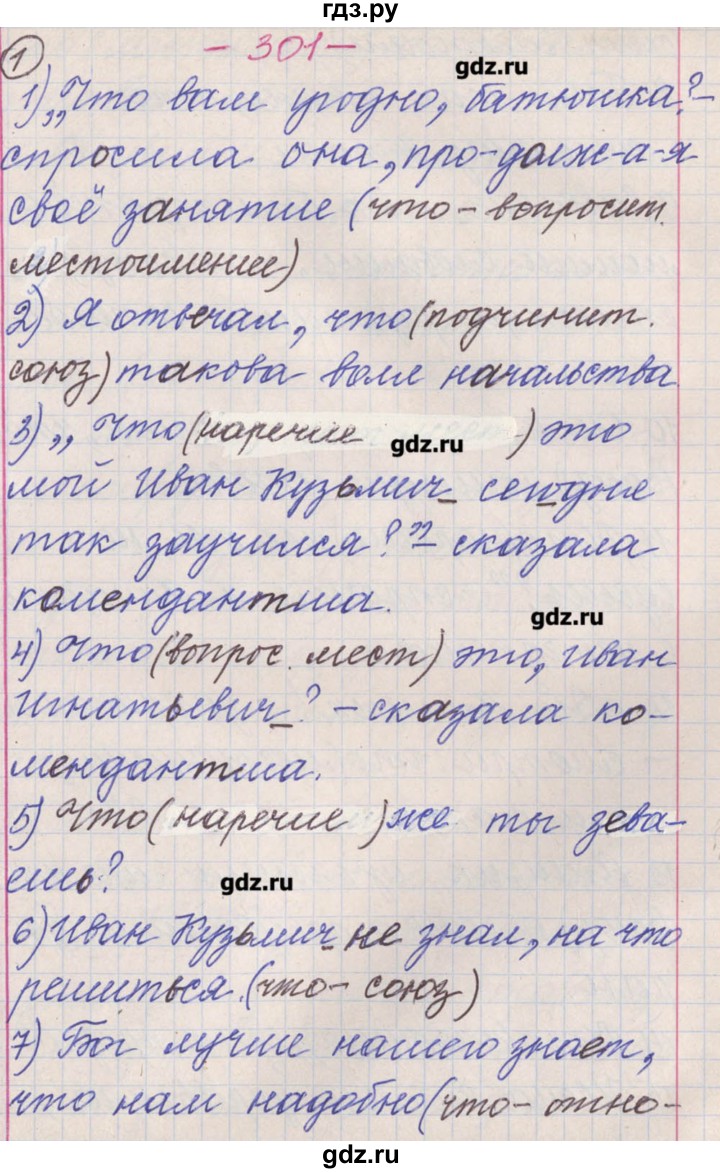 гдз.ру
1
- 301 -
gdz.ru
1) „Что вам угодно, батюшка?-
спросила она, про-долж-а-я
своё занятие (что - вопросит.
местоимение)
2) Я отвечал, что (подчинит.
союз) такова воля начальства
3) „Что (наречие ) это
gdz.ru
мой Иван Кузьмич сегодня
так заучился?" сказала
комендантша.
gdz.ru
4) Что (вопрос. мест) это, Иван
Игнатьевич? - сказала ко-
мендантша.
5) Что (наречие ) же ты зева-
ешь?
gdz.ru
6) Иван Кузьмич не знал, на что
решиться. (что - союз)
7) Бог лучше нашего знает,
что нам надобно (что - отно-
гдз.ру